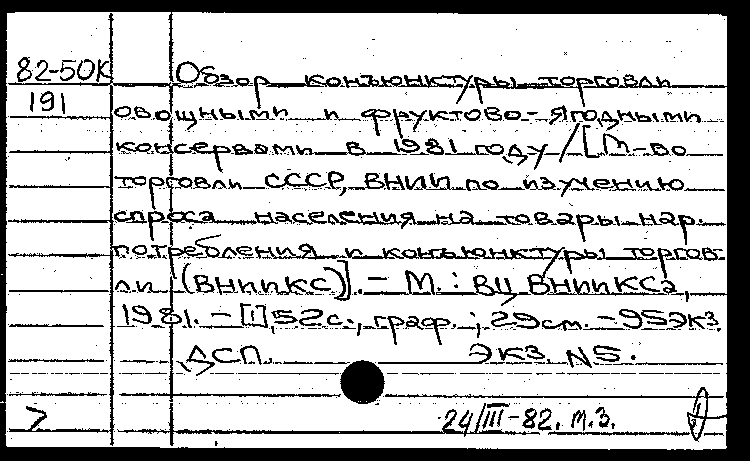 82-50К Обзор конъюнктуры торговли
191 овощными и фруктово-ягодными
консервами в 1981 году / [М-во
торговли СССР, ВНИИ по изучению
спроса населения на товары нар.
потребления и конъюнктуры торгов-
ли (ВНИИКС)]. – М.: ВЦ ВНИИКСа,
1981. – [1], 52 с., граф.; 29 см. – 95 экз.
ДСП. Экз. N5.
24/III-82. м.з.